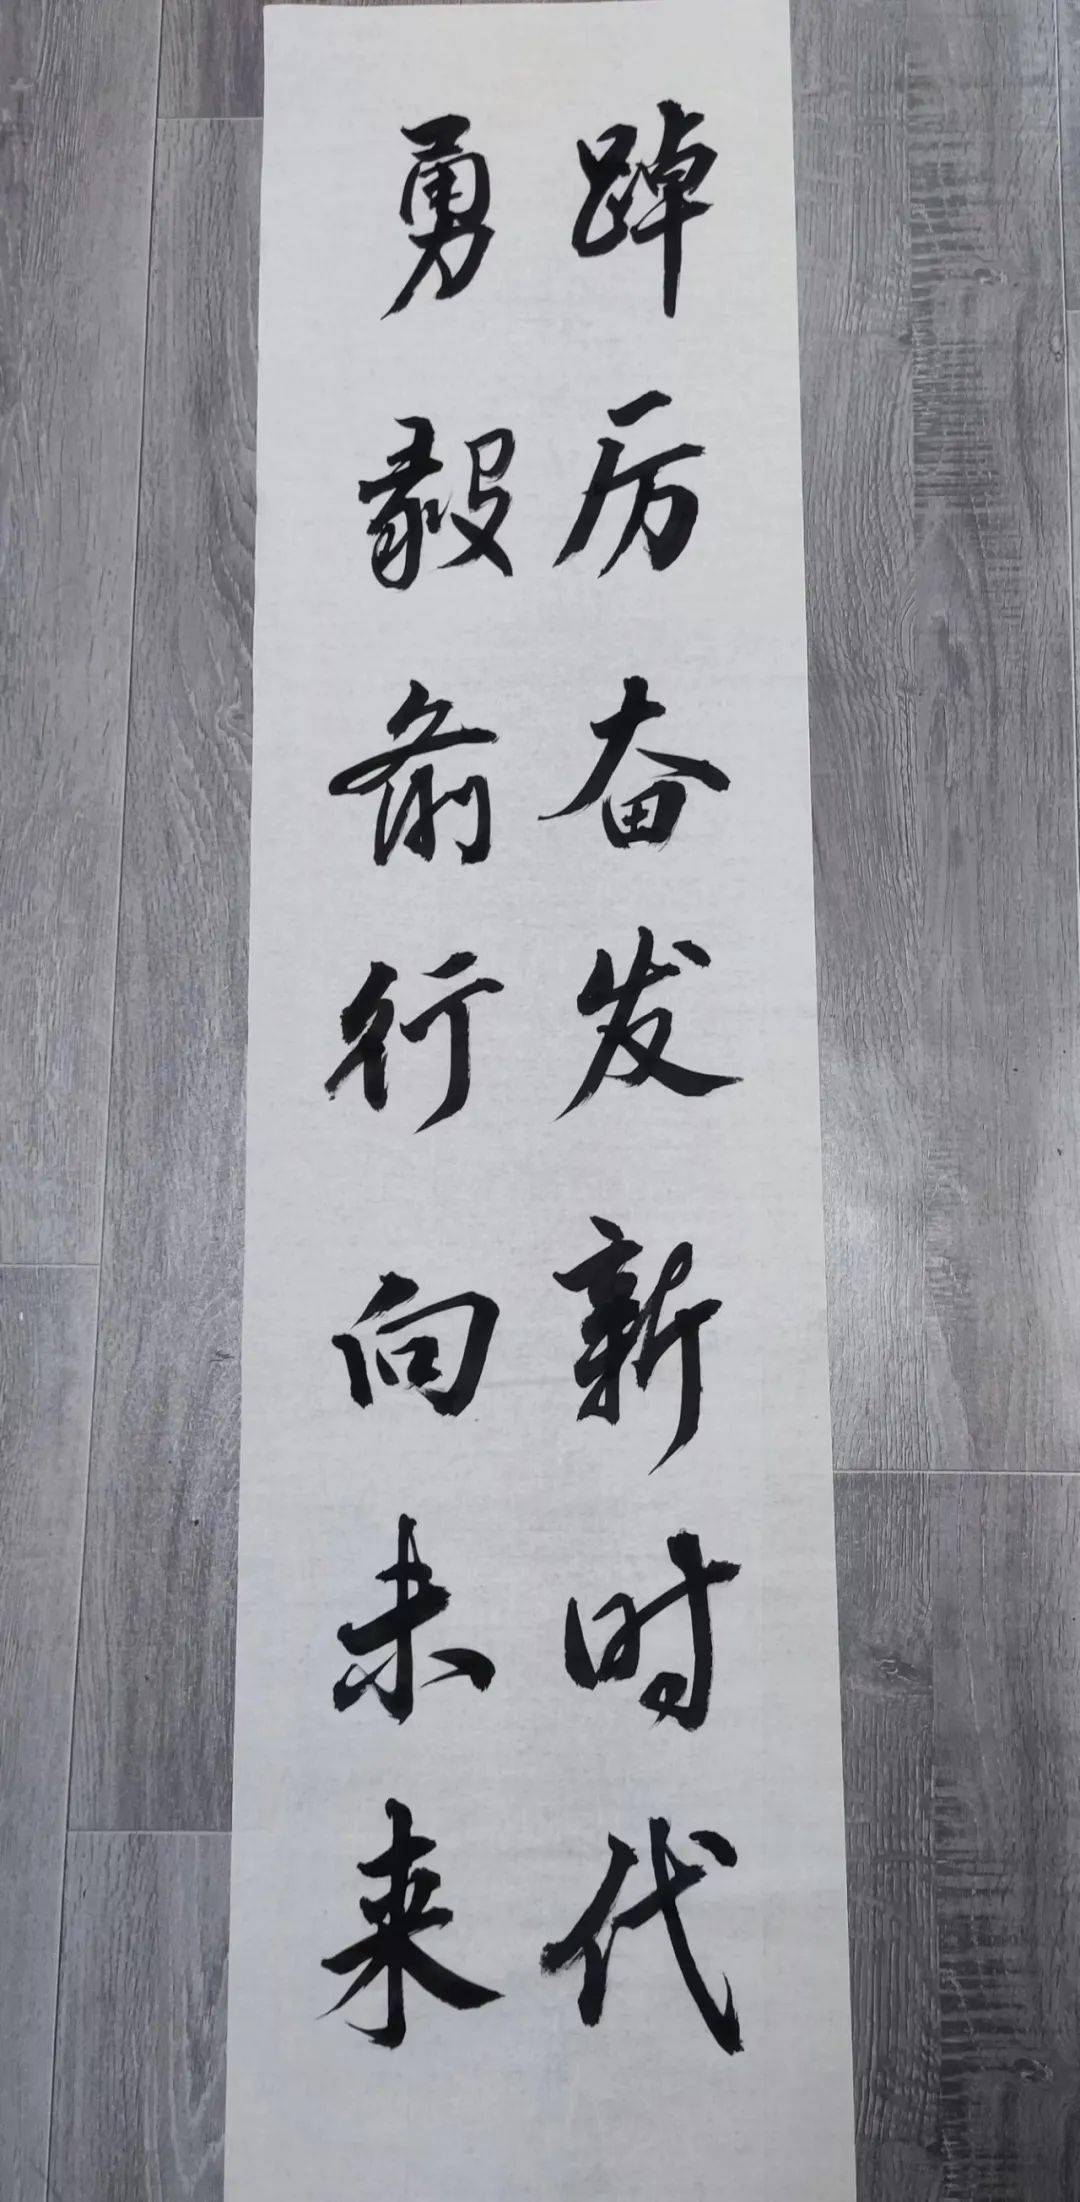 踔厉奋发新时代
勇毅前行向未来